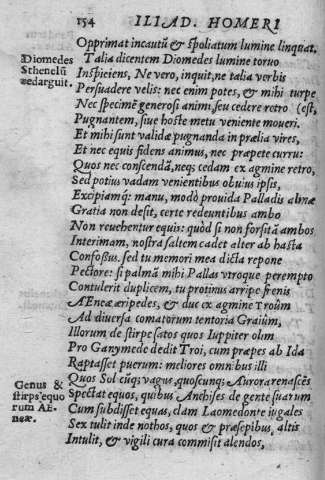 154 ILIAD. HOMERI
Opprimat incautũ & spoliatum lumine linquat.
Diomedes
Sthenelũ
redarguit.
Talia dicentem Diomedes lumine torvo
Inspiciens, Ne vero, inquit, ne talia verbis
Persuadere velis: nec enim potes, & mihi turpe
Nec specimẽ generosi animi, seu cedere retro (est,
Pugnantem, sive hoste metu veniente moveri.
Et mihi sunt validæ pugnanda in prælia vires,
Et nec equis fidens animus, nec præpete curru:
Quos nec conscendã, neq; cedam ex agmine retro,
Sed potius vadam venientibus obvius ipsis,
Excipiamq; manu, modò provida Palladis almæ
Gratia non desit, certe redeuntibus ambo
Non revehentur equis: quòd si non forsitã ambos
Interimam, nostra saltem cadet alter ab hasta
Confossus. sed tu memori mea dicta repone
Pectore: si palmã mihi Pallas utroque perempto
Contulerit duplicem, tu protinus arripe frenis
AEneæ æripedes, & duc ex agmine Troûm
Ad diversa comatorum tentoria Graiûm,
Illorum de stirpe satos quos Iuppiter olim
Pro Ganymede dedit Troi, cum præpes ab Ida
Raptasset puerum: meliores omnibus illi
Genus &
stirps equo
rum AE-
neæ.
Quos Sol cũq; vagus, quoscunq; Aurora renascẽs
Spectat equos, quibus Anchises de gente suarum
Cum subdisset equas, clam Laomedonte iugales
Sex tulit inde nothos, quos & præsepibus, altis
Intulit, & vigili cura commisit alendos,